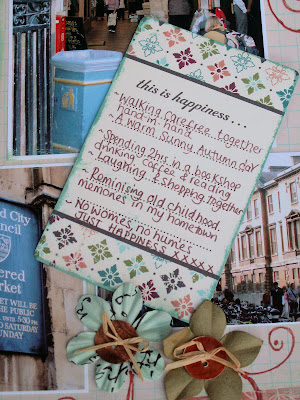 this is happiness . . .
- Walking carefree.. together
hand in hand
- A warm, Sunny, Autumn day
- Spending 2hrs in a bookshop
drinking coffee & reading
- Laughing & shopping together
- Reminising old childhood
memories in my hometown
No worries, no hurries
JUST HAPPINESS X X X X X
d City
uncil
ered
market
ET WILL BE
TO SATURDAY
SUNDAY